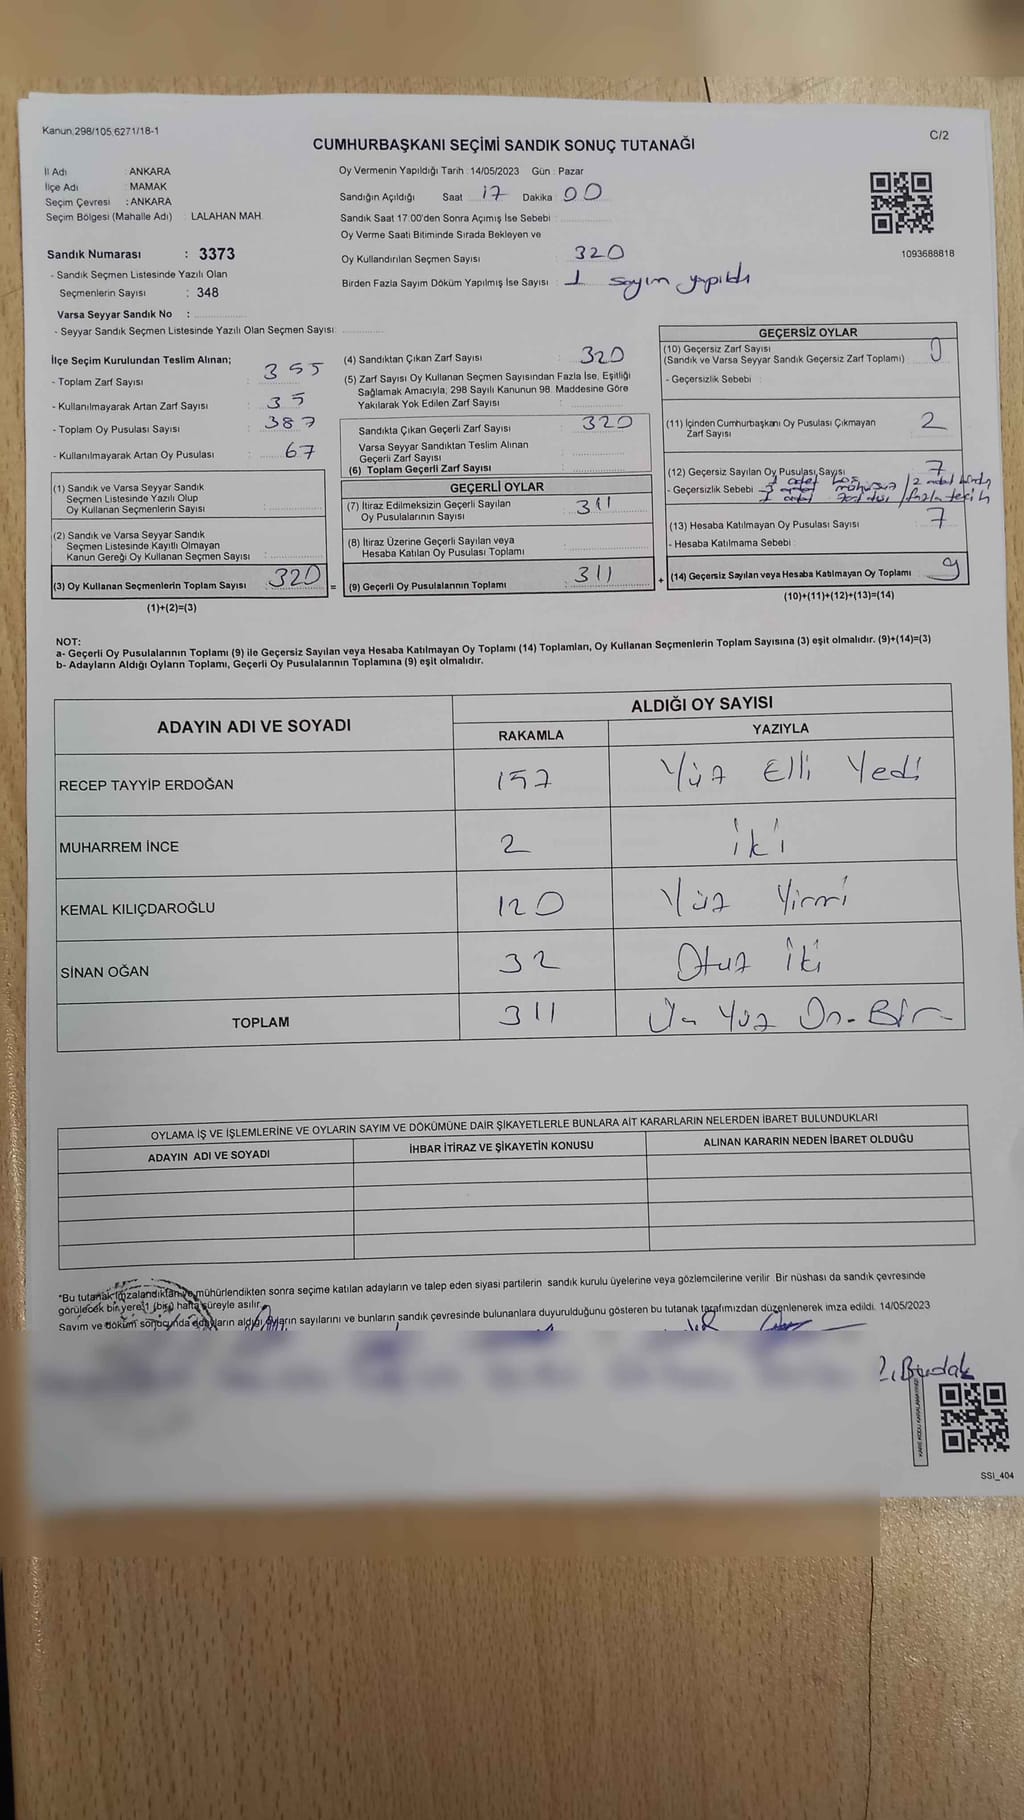 Kanun:298/105,6271/18-1
C/2
CUMHURBAŞKANI SEÇİMİ SANDIK SONUÇ TUTANAĞI
İl Adı : ANKARA
İlçe Adı : MAMAK
Seçim Çevresi : ANKARA
Seçim Bölgesi (Mahalle Adı) : LALAHAN MAH.
Oy Vermenin Yapıldığı Tarih : 14/05/2023 Gün : Pazar
Sandığın Açıldığı Saat 17 Dakika 00
Sandık Saat 17:00'den Sonra Açımış İse Sebebi :
Oy Verme Saati Bitiminde Sırada Bekleyen ve
Oy Kullandırılan Seçmen Sayısı : 320
Birden Fazla Sayım Döküm Yapılmış İse Sayısı : 1 sayım yapıldı
1093688818
Sandık Numarası : 3373
- Sandık Seçmen Listesinde Yazılı Olan
Seçmenlerin Sayısı : 348
Varsa Seyyar Sandık No :
- Seyyar Sandık Seçmen Listesinde Yazılı Olan Seçmen Sayısı:
İlçe Seçim Kurulundan Teslim Alınan;
- Toplam Zarf Sayısı : 355
- Kullanılmayarak Artan Zarf Sayısı : 35
- Toplam Oy Pusulası Sayısı : 387
- Kullanılmayarak Artan Oy Pusulası : 67
(1) Sandık ve Varsa Seyyar Sandık
Seçmen Listesinde Yazılı Olup
Oy Kullanan Seçmenlerin Sayısı :
(2) Sandık ve Varsa Seyyar Sandık
Seçmen Listesinde Kayıtlı Olmayan
Kanun Gereği Oy Kullanan Seçmen Sayısı :
(3) Oy Kullanan Seçmenlerin Toplam Sayısı : 320
(1)+(2)=(3)
(4) Sandıktan Çıkan Zarf Sayısı : 320
(5) Zarf Sayısı Oy Kullanan Seçmen Sayısından Fazla İse, Eşitliği
Sağlamak Amacıyla; 298 Sayılı Kanunun 98. Maddesine Göre
Yakılarak Yok Edilen Zarf Sayısı :
Sandıkta Çıkan Geçerli Zarf Sayısı : 320
Varsa Seyyar Sandıktan Teslim Alınan
Geçerli Zarf Sayısı :
(6) Toplam Geçerli Zarf Sayısı :
GEÇERLİ OYLAR
(7) İtiraz Edilmeksizin Geçerli Sayılan
Oy Pusulalarının Sayısı : 311
(8) İtiraz Üzerine Geçerli Sayılan veya
Hesaba Katılan Oy Pusulası Toplamı :
= (9) Geçerli Oy Pusulalarının Toplamı : 311
GEÇERSİZ OYLAR
(10) Geçersiz Zarf Sayısı
(Sandık ve Varsa Seyyar Sandık Geçersiz Zarf Toplamı) : 0
- Geçersizlik Sebebi :
(11) İçinden Cumhurbaşkanı Oy Pusulası Çıkmayan
Zarf Sayısı : 2
(12) Geçersiz Sayılan Oy Pusulası Sayısı : 7
- Geçersizlik Sebebi adet boş mühürsüz / 2 adet birden
adet / fazla tercih
(13) Hesaba Katılmayan Oy Pusulası Sayısı : 7
- Hesaba Katılmama Sebebi :
+ (14) Geçersiz Sayılan veya Hesaba Katılmayan Oy Toplamı : 9
(10)+(11)+(12)+(13)=(14)
NOT:
a- Geçerli Oy Pusulalarının Toplamı (9) ile Geçersiz Sayılan veya Hesaba Katılmayan Oy Toplamı (14) Toplamları, Oy Kullanan Seçmenlerin Toplam Sayısına (3) eşit olmalıdır. (9)+(14)=(3)
b- Adayların Aldığı Oyların Toplamı, Geçerli Oy Pusulalarının Toplamına (9) eşit olmalıdır.
ADAYIN ADI VE SOYADI
ALDIĞI OY SAYISI
RAKAMLA YAZIYLA
RECEP TAYYİP ERDOĞAN 157 Yüz Elli Yedi
MUHARREM İNCE 2 iki
KEMAL KILIÇDAROĞLU 120 Yüz Yirmi
SİNAN OĞAN 32 Otuz İki
TOPLAM 311 Üç Yüz On-Bir
OYLAMA İŞ VE İŞLEMLERİNE VE OYLARIN SAYIM VE DÖKÜMÜNE DAİR ŞİKAYETLERLE BUNLARA AİT KARARLARIN NELERDEN İBARET BULUNDUKLARI
ADAYIN ADI VE SOYADI İHBAR İTİRAZ VE ŞİKAYETİN KONUSU ALINAN KARARIN NEDEN İBARET OLDUĞU
*Bu tutanak imzalandıktan ve mühürlendikten sonra seçime katılan adayların ve talep eden siyasi partilerin sandık kurulu üyelerine veya gözlemcilerine verilir. Bir nüshası da sandık çevresinde
görülecek bir yere 1 (bir) hafta süreyle asılır.
Sayım ve döküm sonucunda adayların aldığı oyların sayılarını ve bunların sandık çevresinde bulunanlara duyurulduğunu gösteren bu tutanak tarafımızdan düzenlenerek imza edildi. 14/05/2023
Budak
SSI_404